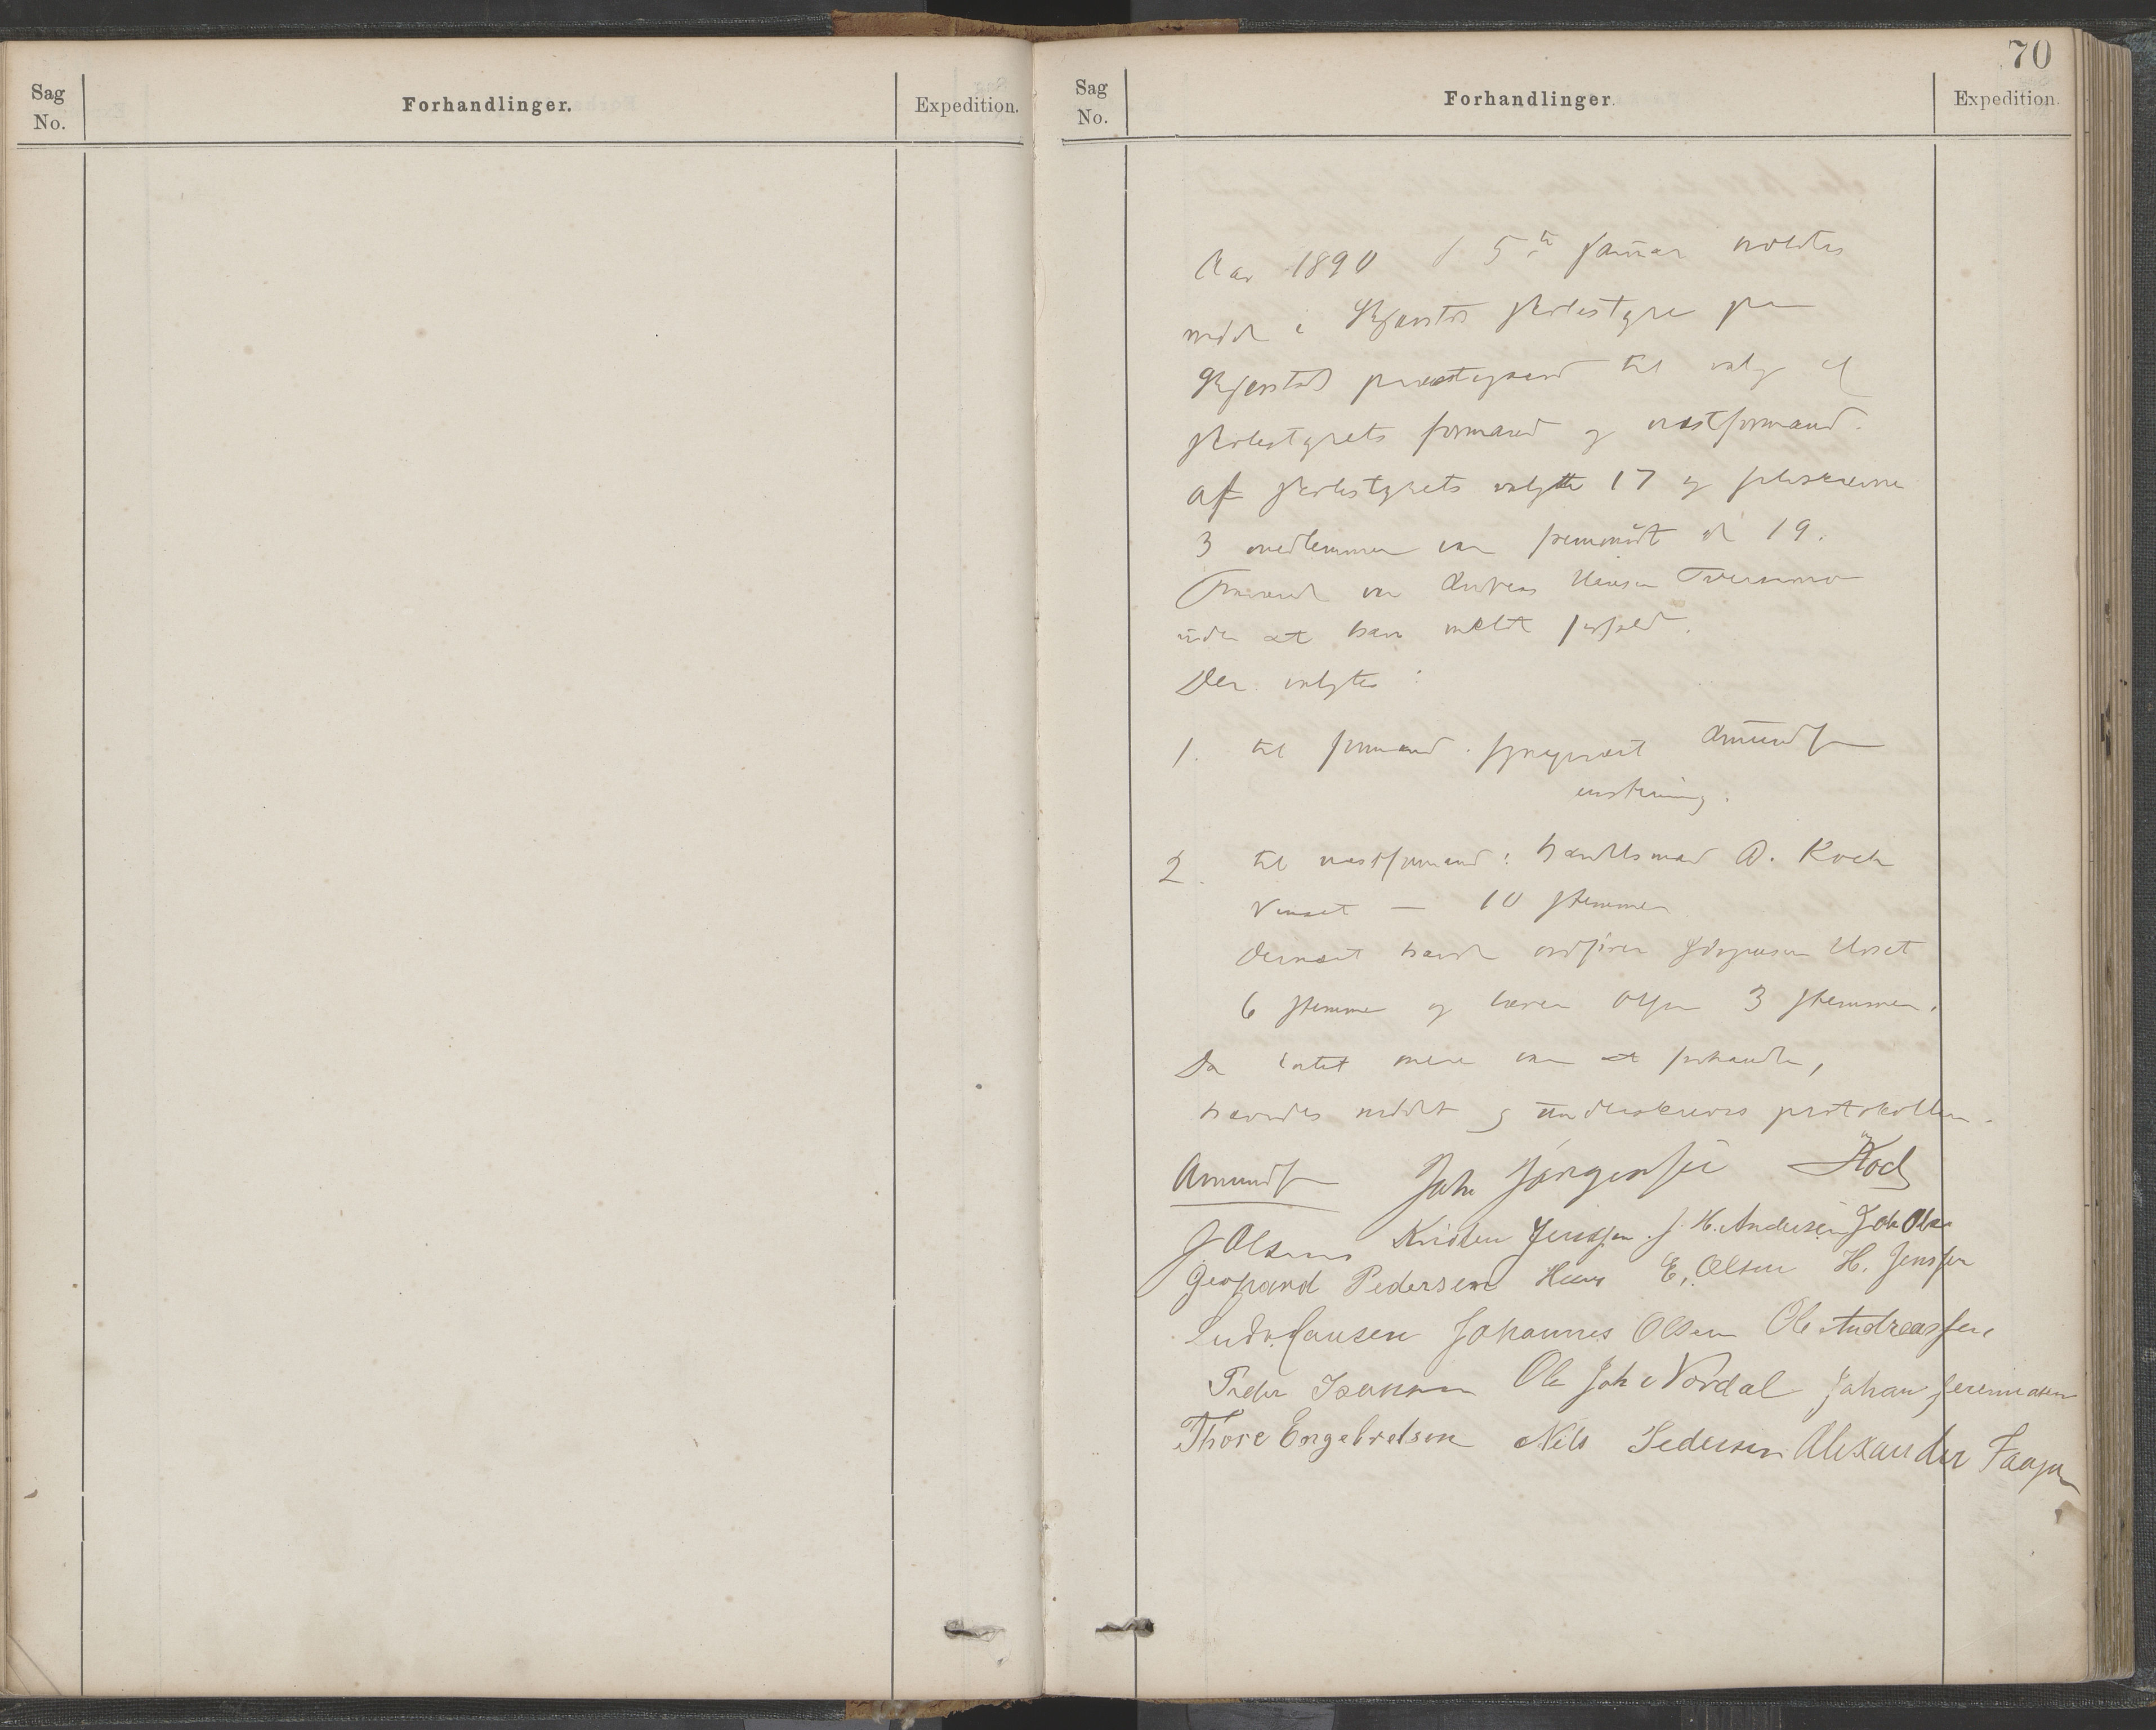 Sag
No.
Forhandlinger.
Expedition.
70
Sag
No.
Forhandlinger.
Expedition.
Aar 1890 d 5te Januar holdtes
møde i Skjerstad skolestyre paa
Skjerstad præstegaard til valg af
skolestyrets formand og næstformand.
Af skolestyrets valgte 17 og selvskrevne
3 medlemmer var fremmødt de 19.
Fraværende var Andreas Hansen Tverrmo
uden at have meldt forfald.
Der valgtes:
1. til formand: sogneprest Amundsen
enstemmig.
2. til næstformand: handelsmand A. Koch
Venset – 10 stemmer
Dernæst havde ordfører Jörgensen Uoset
6 stemmer og lærer Olsen 3 stemmer.
Da intet mere var at forhandle,
hævedes mödet og underskreves protokollen.
Amundsen Joh Jörgensen Koch
J Olsen Kristen Jenssen J. H. Andersen Joh Olsen
Gerhard Pedersen Hans E. Olsen H. Jenssen
Ludv. Hansen Johannes Olsen Ole Andreassen
Peder Isaksen Ole Joh Nordal Johan Jeremiasen
Thore Engebretsen Nils Pedersen Alexander